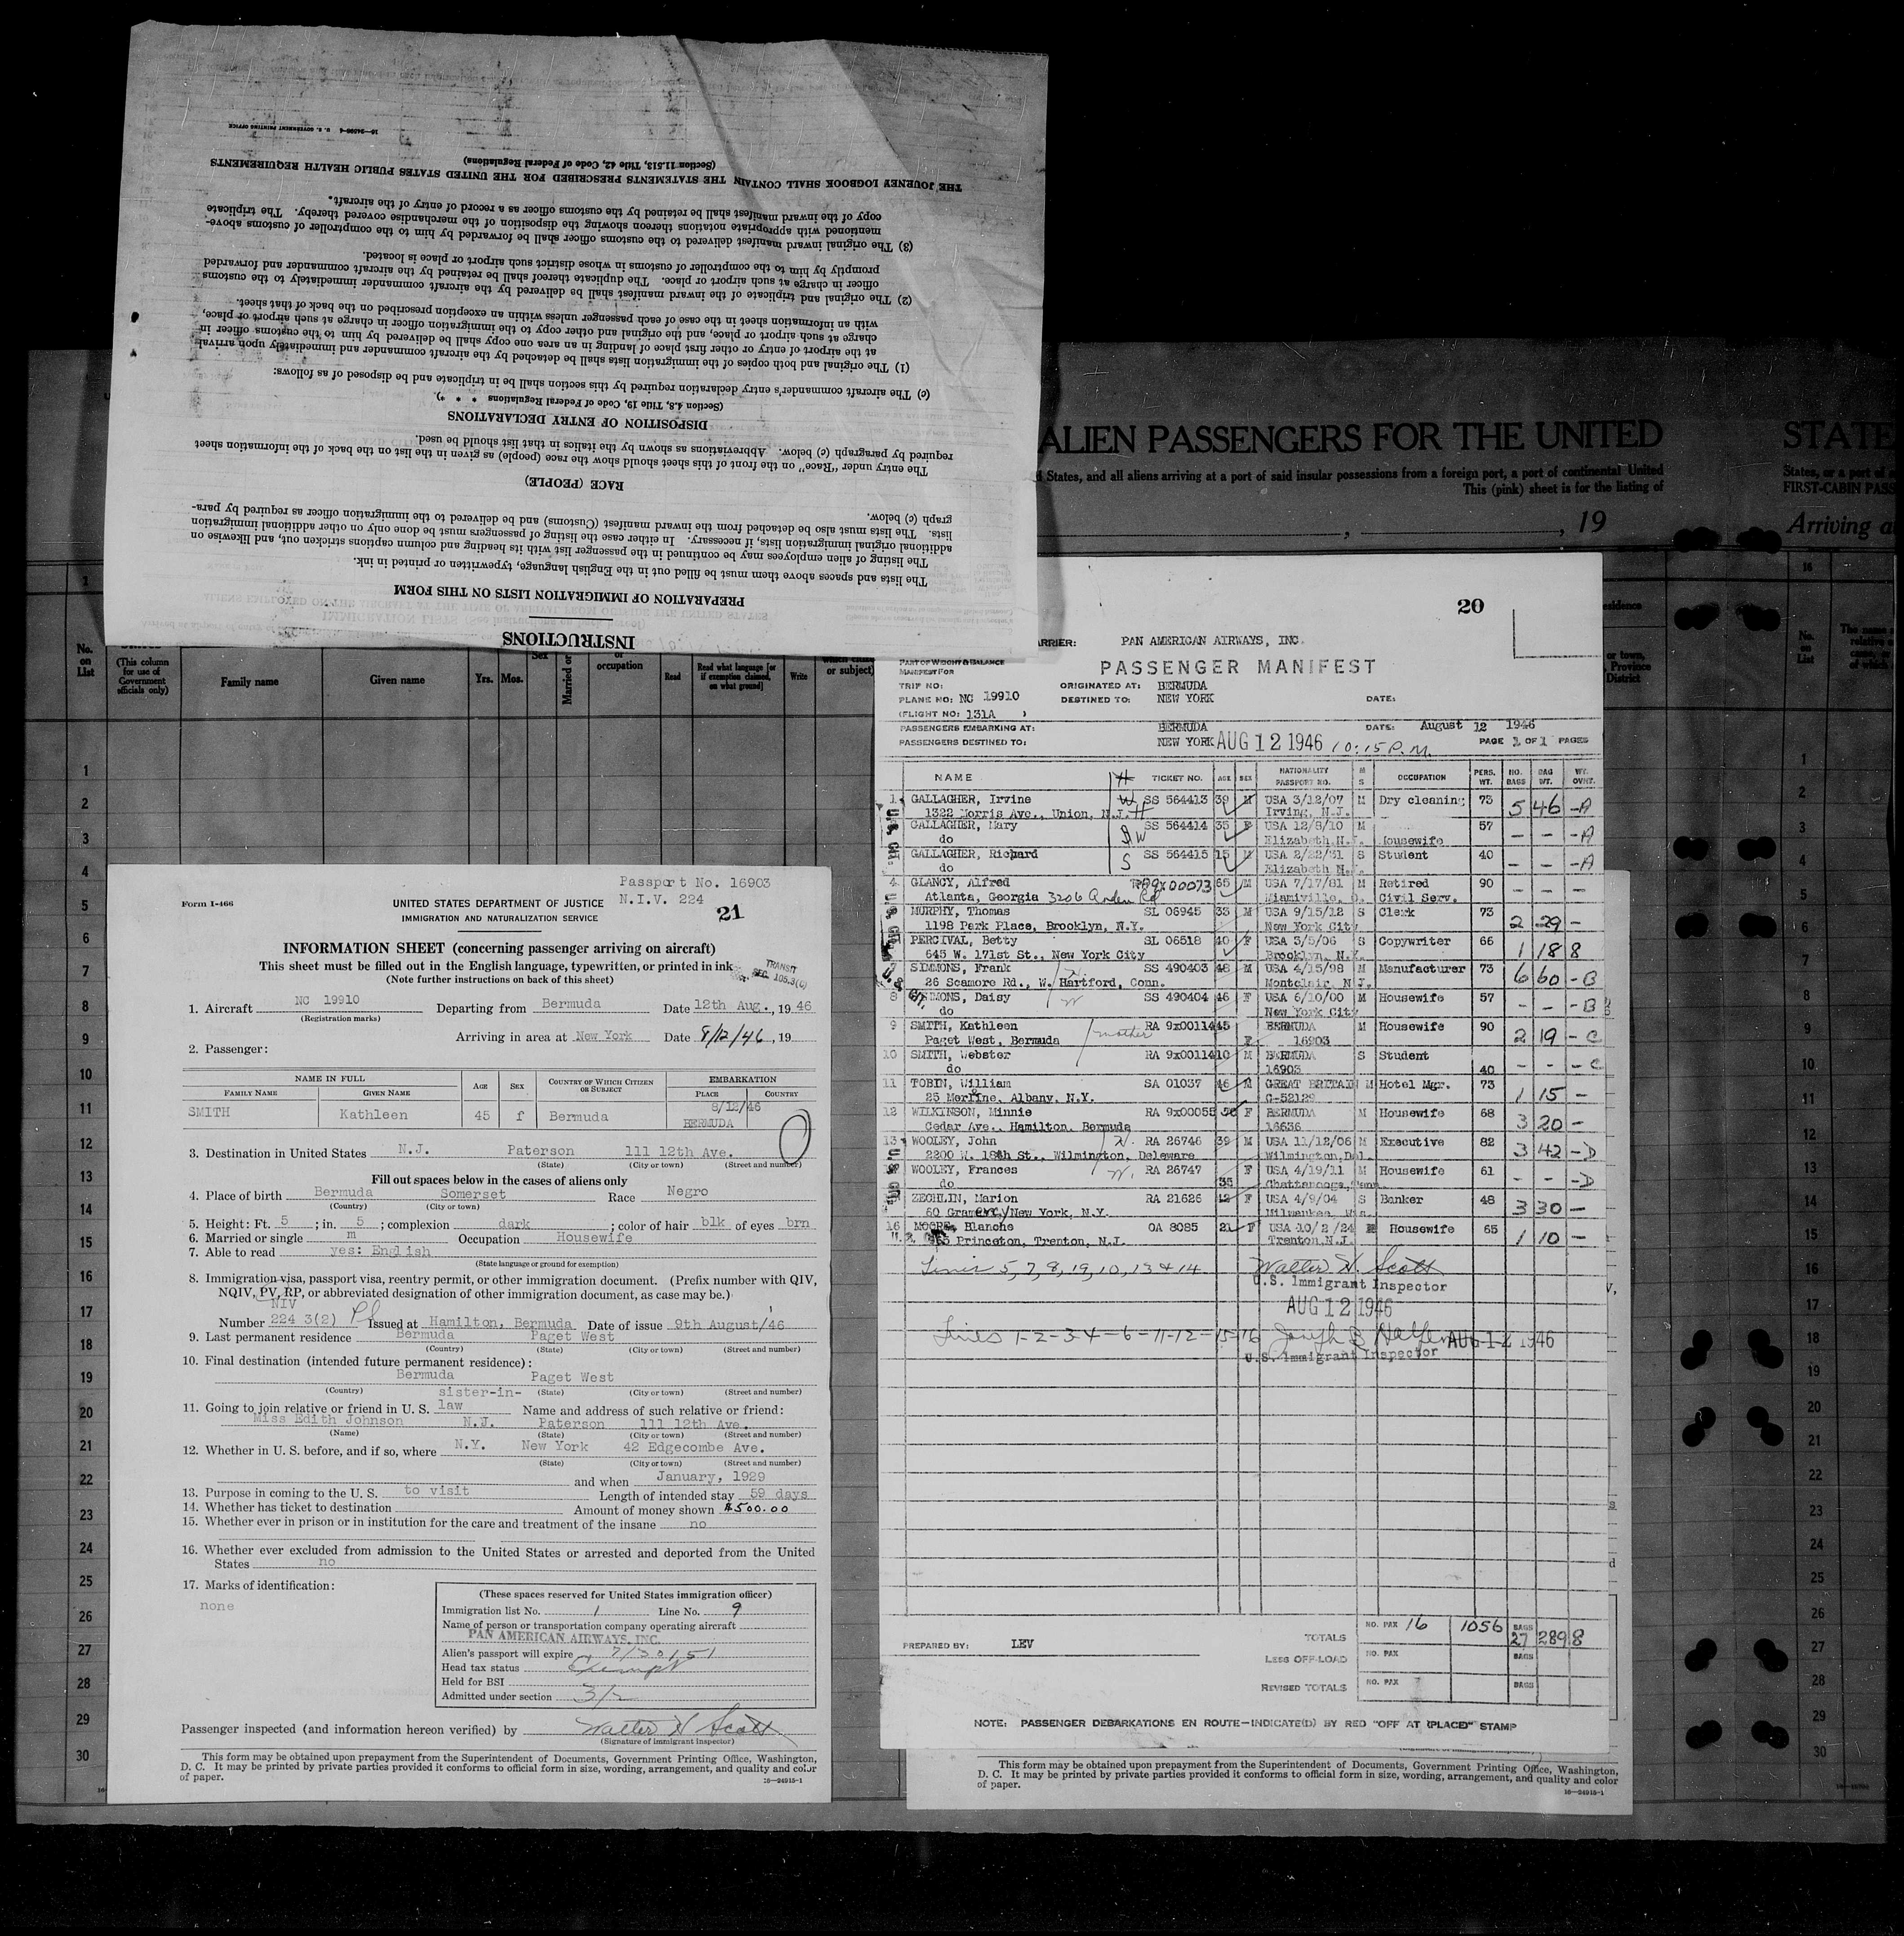 INSTRUCTIONS
PREPARATION OF IMMIGRATION LISTS ON THIS FORM
The lists and spaces above them must be filled out in the English language, typewritten or printed in ink.
The listing of alien employees may be continued in the passenger list with its heading and column captions stricken out, and likewise on
additional original immigration lists, if necessary. In either case the listing of passengers must be done only on other additional immigration
lists. The lists must also be detached from the inward manifest (Customs) and be delivered to the immigration officer as required by para-
graph (c) below.
RACE (PEOPLE)
The entry under "Race" on the front of this sheet should show the race (people) as given in the list on the back of the information sheet
required by paragraph (c) below. Abbreviations as shown by the italics in that list should be used.
DISPOSITION OF ENTRY DECLARATIONS
(Section 4.8, Title 19, Code of Federal Regulations * * *).
(c) The aircraft commander's entry declaration required by this section shall be in triplicate and be disposed of as follows:
(1) The original and both copies of the immigration lists shall be detached by the aircraft commander and immediately upon arrival
at the airport of entry or other first place of landing in an area one copy shall be delivered by him to the customs officer in
charge at such airport or place, and the original and other copy to the immigration officer in charge at such airport or place,
with an information sheet in the case of each passenger unless within an exception prescribed on the back of that sheet.
(2) The original and triplicate of the inward manifest shall be delivered by the aircraft commander immediately to the customs
officer in charge at such airport or place. The duplicate thereof shall be retained by the aircraft commander and forwarded
promptly by him to the comptroller of customs in whose district such airport or place is located.
(3) The original inward manifest delivered to the customs officer shall be forwarded by him to the comptroller of customs above-
mentioned with appropriate notations thereon showing the disposition of the merchandise covered thereby. The triplicate
copy of the inward manifest shall be retained by the customs officer as a record of entry of the aircraft.
THE JOURNEY LOGBOOK SHALL CONTAIN THE STATEMENTS PRESCRIBED FOR THE UNITED STATES PUBLIC HEALTH REQUIREMENTS
(Section 11.513, Title 42, Code of Federal Regulations)
U. S. GOVERNMENT PRINTING OFFICE
ALIEN PASSENGERS FOR THE UNITED STATE
States, and all aliens arriving at a port of said insular possessions from a foreign port, a port of continental United
This (pink) sheet is for the listing of
States, or a port of
FIRST-CABIN PASS
, 19
Arriving a
No. on List
(This column for use of Government officials only)
Family name
Given name
Yrs. Mos.
Sex
Married or
or occupation
Read
Read what language [or if exemption claimed, on what ground]
Write
or subject)
or town, Province District
No. on List
Passport No. 16903
N.I.V. 224
Form I-466
UNITED STATES DEPARTMENT OF JUSTICE
IMMIGRATION AND NATURALIZATION SERVICE
21
INFORMATION SHEET (concerning passenger arriving on aircraft)
This sheet must be filled out in the English language, typewritten, or printed in ink
(Note further instructions on back of this sheet)
TRANSIT
SEC. 105.3(c)
1. Aircraft NC 19910 Departing from Bermuda Date 12th Aug., 19 46
(Registration marks)
Arriving in area at New York Date 8/12/46, 19
2. Passenger:
NAME IN FULL AGE SEX COUNTRY OF WHICH CITIZEN OR SUBJECT EMBARKATION
FAMILY NAME GIVEN NAME PLACE COUNTRY
SMITH Kathleen 45 f Bermuda 8/12/46 BERMUDA
3. Destination in United States N.J. Paterson 111 12th Ave.
(State) (City or town) (Street and number)
Fill out spaces below in the cases of aliens only
4. Place of birth Bermuda Somerset Race Negro
(Country) (City or town)
5. Height: Ft. 5; in. 5; complexion dark; color of hair blk of eyes brn
6. Married or single m Occupation Housewife
7. Able to read yes: English
(State language or ground for exemption)
8. Immigration visa, passport visa, reentry permit, or other immigration document. (Prefix number with QIV,
NQIV, PV, RP, or abbreviated designation of other immigration document, as case may be.)
NIV
Number 224 3(2) Issued at Hamilton, Bermuda Date of issue 9th August/46
9. Last permanent residence Bermuda Paget West
(Country) (State) (City or town) (Street and number)
10. Final destination (intended future permanent residence):
Bermuda Paget West
(Country) (State) (City or town) (Street and number)
11. Going to join relative or friend in U. S. sister-in-law Name and address of such relative or friend:
Miss Edith Johnson N.J. Paterson 111 12th Ave.
(Name) (State) (City or town) (Street and number)
12. Whether in U. S. before, and if so, where N.Y. New York 42 Edgecombe Ave.
(State) (City or town) (Street and number)
and when January, 1929
13. Purpose in coming to the U. S. to visit Length of intended stay 59 days
14. Whether has ticket to destination Amount of money shown $500.00
15. Whether ever in prison or in institution for the care and treatment of the insane no
16. Whether ever excluded from admission to the United States or arrested and deported from the United
States no
17. Marks of identification:
none
(These spaces reserved for United States immigration officer)
Immigration list No. 1 Line No. 9
Name of person or transportation company operating aircraft
PAN AMERICAN AIRWAYS, INC.
Alien's passport will expire 7/30/51
Head tax status Exempt
Held for BSI
Admitted under section 3/2
Passenger inspected (and information hereon verified) by Walter N Scott
(Signature of immigrant inspector)
This form may be obtained upon prepayment from the Superintendent of Documents, Government Printing Office, Washington,
D. C. It may be printed by private parties provided it conforms to official form in size, wording, arrangement, and quality and color
of paper.
16—24915-1
20
RRIER: PAN AMERICAN AIRWAYS, INC.
PART OF WEIGHT & BALANCE
MANIFEST FOR
PASSENGER MANIFEST
TRIP NO: ORIGINATED AT: BERMUDA
PLANE NO: NC 19910 DESTINED TO: NEW YORK DATE:
(FLIGHT NO: 131A )
PASSENGERS EMBARKING AT: BERMUDA DATE: August 12 1946
PASSENGERS DESTINED TO: NEW YORK AUG 12 1946 10:15 P.M. PAGE 1 OF 1 PAGES
NAME H TICKET NO. AGE SEX NATIONALITY PASSPORT NO. M S OCCUPATION PERS. WT. NO. BAGS BAG WT. WT. OVHT.
1 GALLAGHER, Irvine SS 564413 39 M USA 3/12/07 M Dry cleaning 73 5 46 -A
1322 Morris Ave., Union, N.J. Irving, N.J.
GALLAGHER, Mary SS 564414 35 F USA 12/8/10 M 57 - - -A
do Elizabeth N.J. Housewife
GALLAGHER, Richard S SS 564415 15 M USA 2/22/31 S Student 40 - - -A
do Elizabeth N.J.
4 GLANCY, Alfred 9X00073 65 M USA 7/17/81 M Retired 90 - - -
Atlanta, Georgia 3206 Rd Miamiville, O. Civil Serv.
MURPHY, Thomas SL 06945 33 M USA 9/15/12 S Clerk 73 2 29 -
1198 Park Place, Brooklyn, N.Y. New York City
PERCIVAL, Betty SL 06518 40 F USA 3/5/06 S Copywriter 66 1 18 8
645 W. 171st St., New York City Brooklyn, N.Y.
7 SIMMONS, Frank SS 490403 48 M USA 4/15/98 M Manufacturer 73 6 60 -B
26 Seamore Rd., W. Hartford, Conn. Montclair, N.J.
8 SIMMONS, Daisy W SS 490404 46 F USA 6/10/00 M Housewife 57 - - -B
New York City
9 SMITH, Kathleen mother RA 9x00114 45 F BERMUDA M Housewife 90 2 19 -C
Paget West, Bermuda 16903
10 SMITH, Webster RA 9x00114 10 M BERMUDA S Student 40 - - -C
do 16903
11 TOBIN, William SA 01037 46 M GREAT BRITAIN M Hotel Mgr. 73 1 15 -
25 Merline, Albany, N.Y. G-52129
12 WILKINSON, Minnie RA 9x00055 F BERMUDA M Housewife 68 3 20 -
Cedar Ave., Hamilton, Bermuda 16636
13 WOOLEY, John RA 26746 39 M USA 11/12/06 M Executive 82 3 42 -D
2200 W. 18th St., Wilmington, Delaware Wilmington, Del.
WOOLEY, Frances W. RA 26747 35 F USA 4/19/11 M Housewife 61 - - -D
do Chattanooga, Tenn.
ZECHLIN, Marion RA 21626 42 F USA 4/9/04 S Banker 48 3 30 -
60 Gramercy New York, N.Y. Milwaukee, Wis.
16 MOORE, Blanche OA 8085 21 F USA 10/2/24 M Housewife 65 1 10 -
Princeton, Trenton, N.J. Trenton, N.J.
Lines 5, 7, 8, 19, 10, 13 & 14 Walter N. Scott
U.S. Immigrant Inspector
AUG 12 1946
Lines 1-2-3-4-6-11-12-15-16 Joseph B Halfen AUG 12 1946
U.S. Immigrant Inspector
PREPARED BY: LEV
TOTALS NO. PAX 16 1056 BAGS 27 289 8
LESS OFF-LOAD NO. PAX BAGS
REVISED TOTALS NO. PAX BAGS
NOTE: PASSENGER DEBARKATIONS EN ROUTE—INDICATE(D) BY RED "OFF AT (PLACE)" STAMP
This form may be obtained upon prepayment from the Superintendent of Documents, Government Printing Office, Washington,
D. C. It may be printed by private parties provided it conforms to official form in size, wording, arrangement, and quality and color
of paper.
16—24915-1